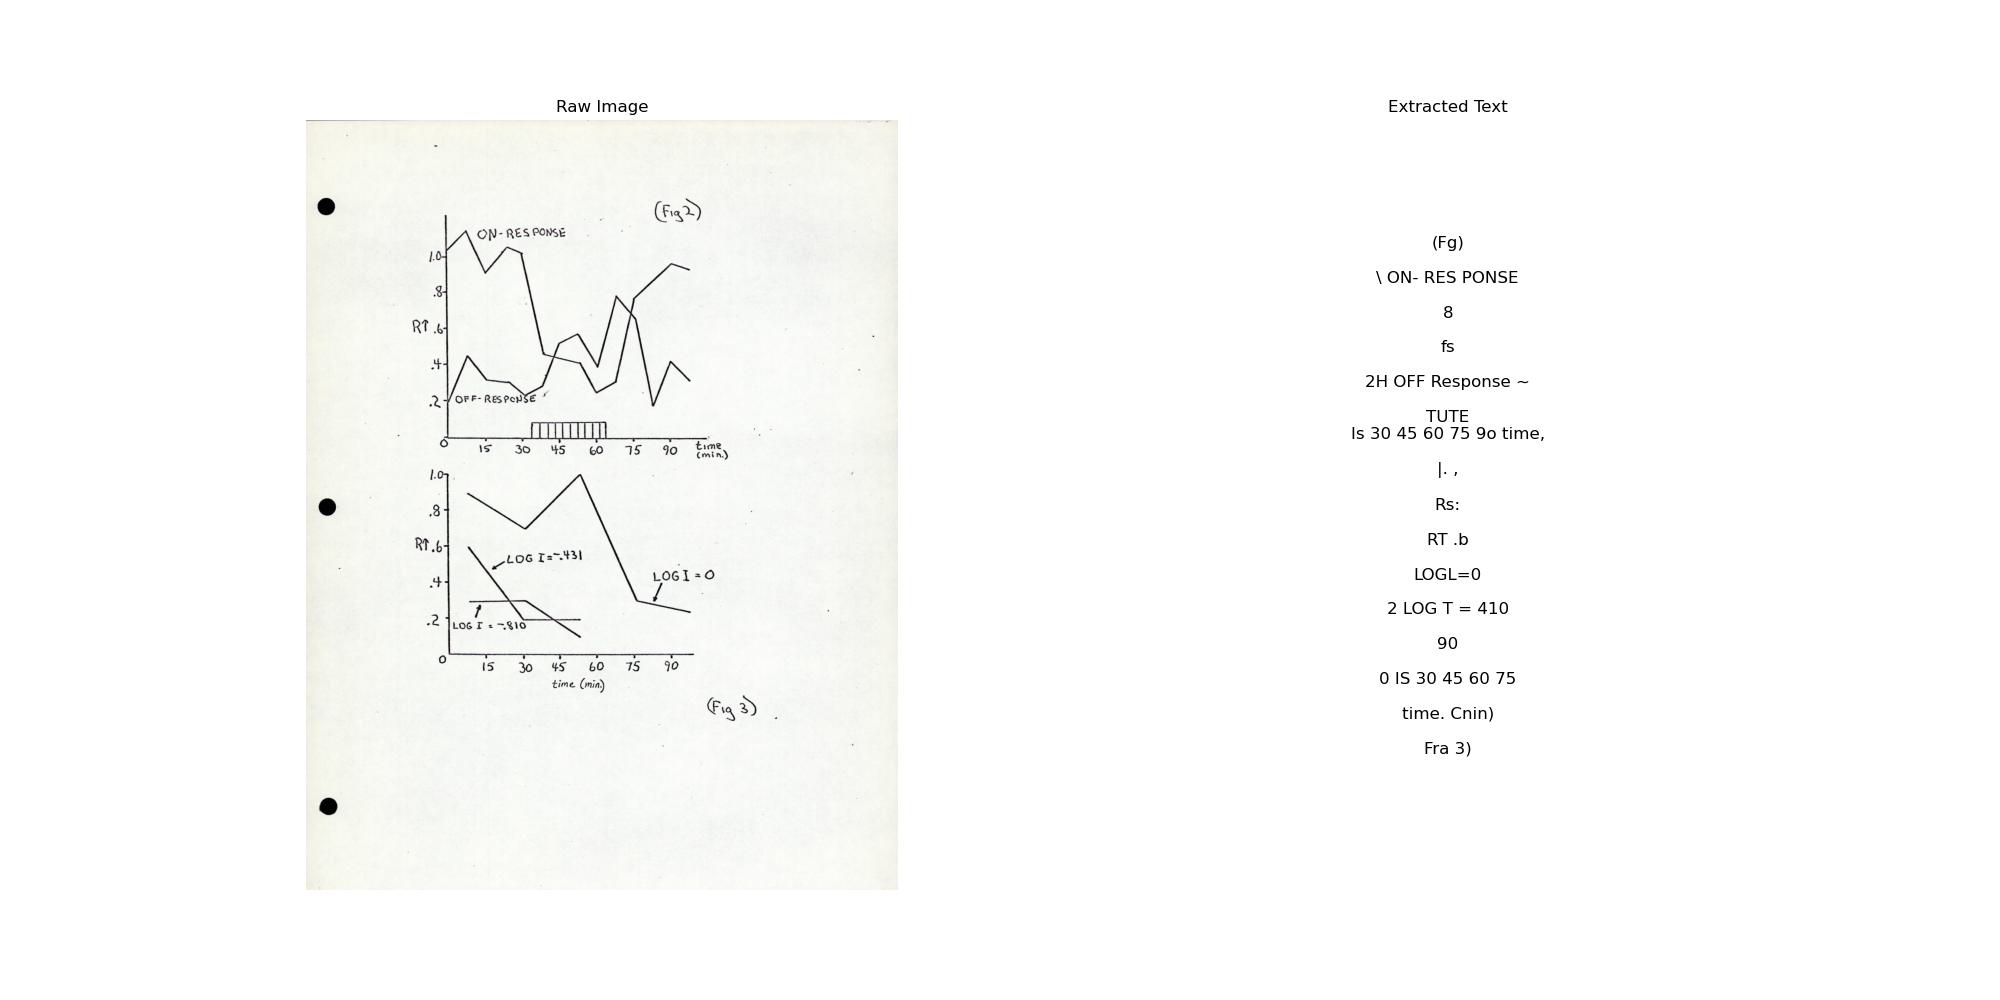 Raw Image
(Fig 2)
ON-RESPONSE
1.0
.8
R↑ .6
.4
.2
OFF-RESPONSE
0
15 30 45 60 75 90 time
(min.)
1.0
.8
R↑ .6
LOG I = -.431
.4
LOG I = 0
.2
LOG I = -.810
0
15 30 45 60 75 90
time (min.)
(Fig 3)
Extracted Text
(Fg)
\ ON- RES PONSE
8
fs
2H OFF Response ~
TUTE
Is 30 45 60 75 9o time,
|. ,
Rs:
RT .b
LOGL=0
2 LOG T = 410
90
0 IS 30 45 60 75
time. Cnin)
Fra 3)